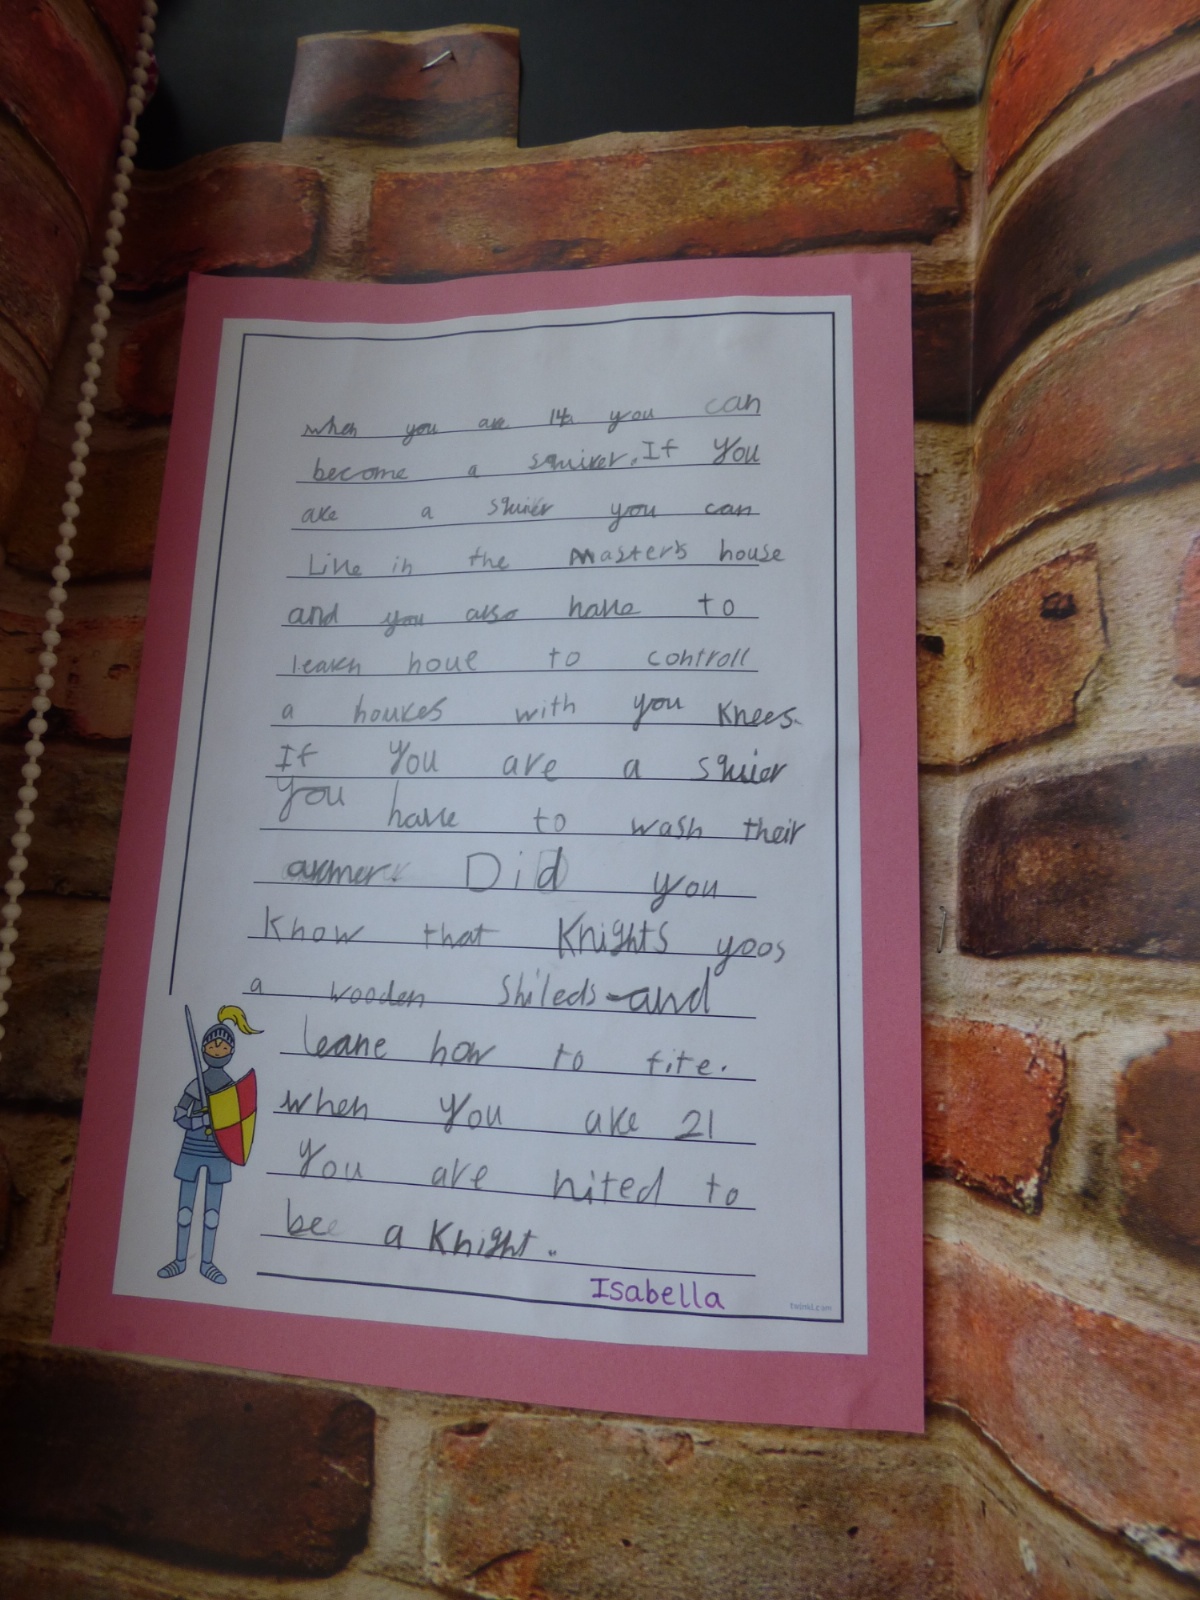 when you are 14 you can
become a squirer. If you
are a squier you can
Live in the Master's house
and you also have to
learn houe to controll
a houres with you knees.
If you are a squier
you have to wash their
armer Did you
know that Knights yoos
a wooden shileds and
leane how to fite.
when you are 21
you are nited to
bee a Knight.
Isabella
twinkl.com